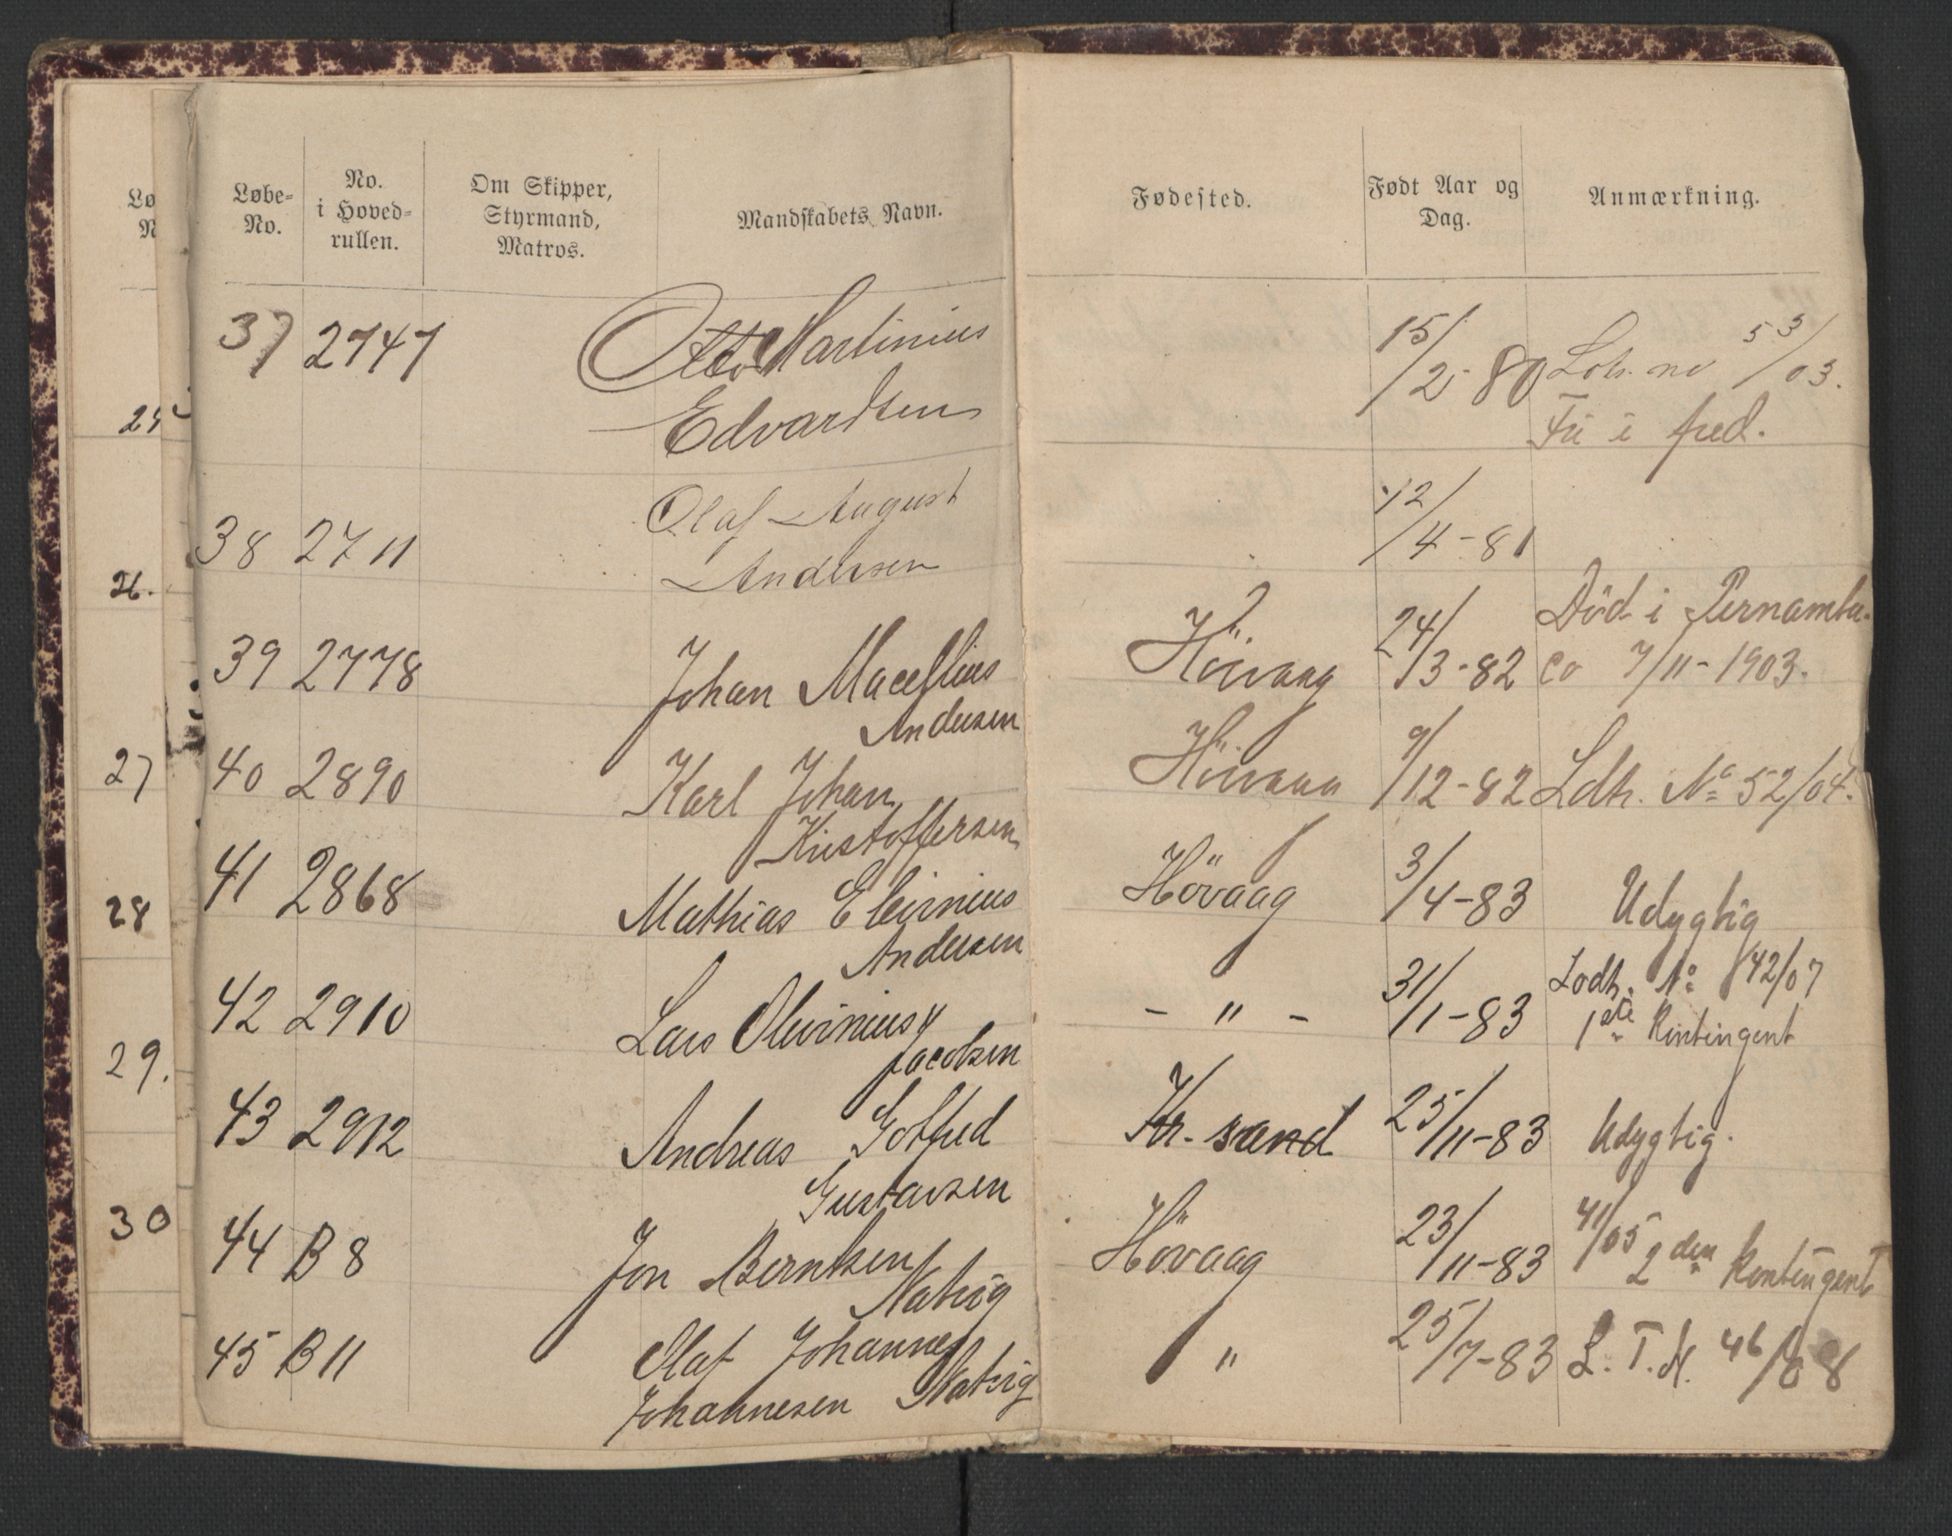 Løbe-No. No. i Hoved-rullen. Om Skipper, Styrmand, Matros. Mandskabets Navn. Fødested. Født Aar og Dag. Anmærkning.
37 2747 Otto Martinius 15/2-80 53/03.
Edvardsen i fred.
38 2711 Olaf August 12/4-81
Andersen
39 2778 Johan Macellius Höivaag 24/3-82 Död i Pernambu-
Andersen co 7/11-1903.
40 2890 Karl Johan Höivaag 9/12-82 Ldh. No 52/04.
Kristoffersen
41 2868 Mathias Elevinius Hövaag 3/4-83 Udygtig
Andersen
42 2910 Lars Olevinius - " - 31/1-83 Lodh. No 142/07
Jacobsen 1ste Kontingent
43 2912 Andreas Gotfred Kr. sand 25/11-83 Udygtig.
Gustavsen
44 B 8 Jon Berntsen Hövaag 23/11-83 41/05 2den Kontingent
Natvig
45 B 11 Olaf Johannes " 25/7-83 L. T. N. 46/08
Johannesen Natvig
26.
27
28
29.
30